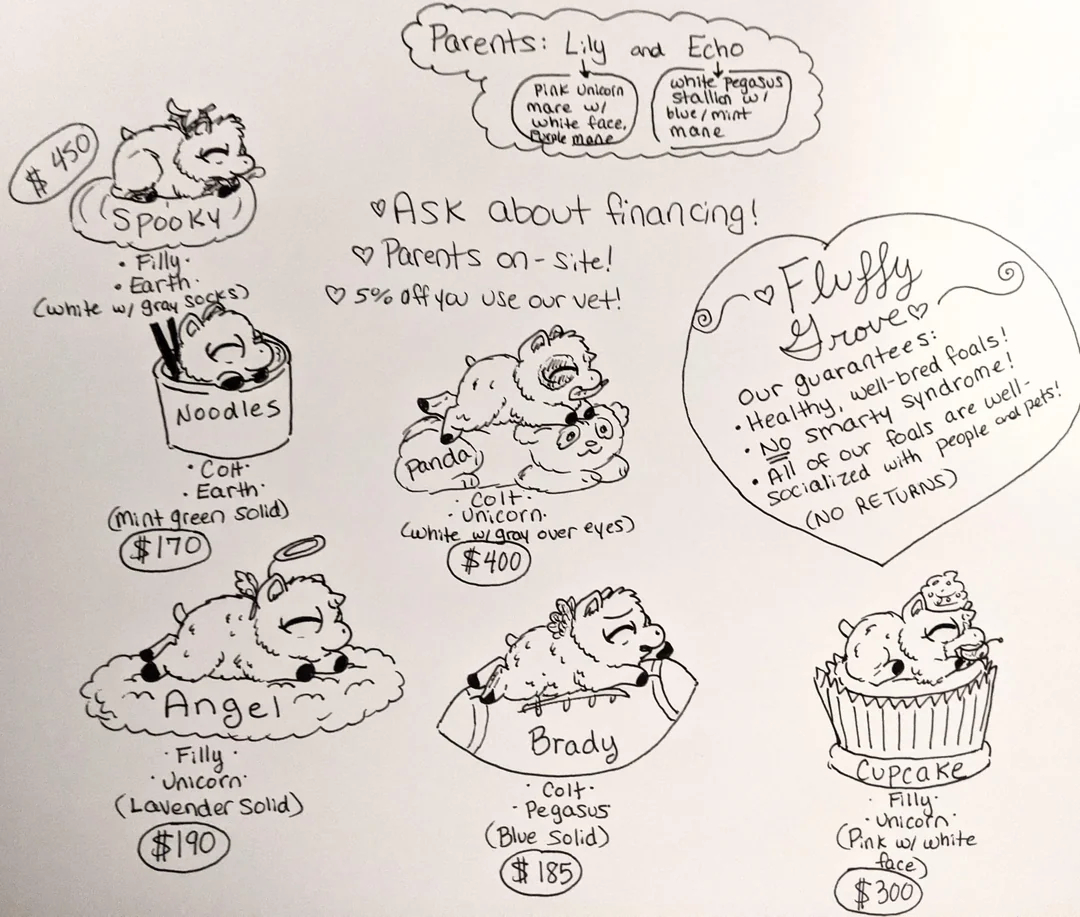 Parents: Lily and Echo
Pink Unicorn
mare w/
white face,
Purple mane
white Pegasus
stallion w/
blue/mint
mane
$ 450
Spooky
• Filly •
• Earth •
(white w/ gray socks)
♡ Ask about financing!
♡ Parents on-site!
♡ 5% off you use our vet!
♡ Fluffy
Grove ♡
Our guarantees:
• Healthy, well-bred foals!
• NO smarty syndrome!
• All of our foals are well-
socialized with people and pets!
(NO RETURNS)
Noodles
• Colt •
• Earth •
(Mint green solid)
$170
Panda
• Colt •
• Unicorn •
(White w/gray over eyes)
$400
Angel
• Filly •
• Unicorn •
(Lavender Solid)
$190
Brady
• Colt •
• Pegasus •
(Blue Solid)
$185
Cupcake
• Filly •
• Unicorn •
(Pink w/ white
face)
$300